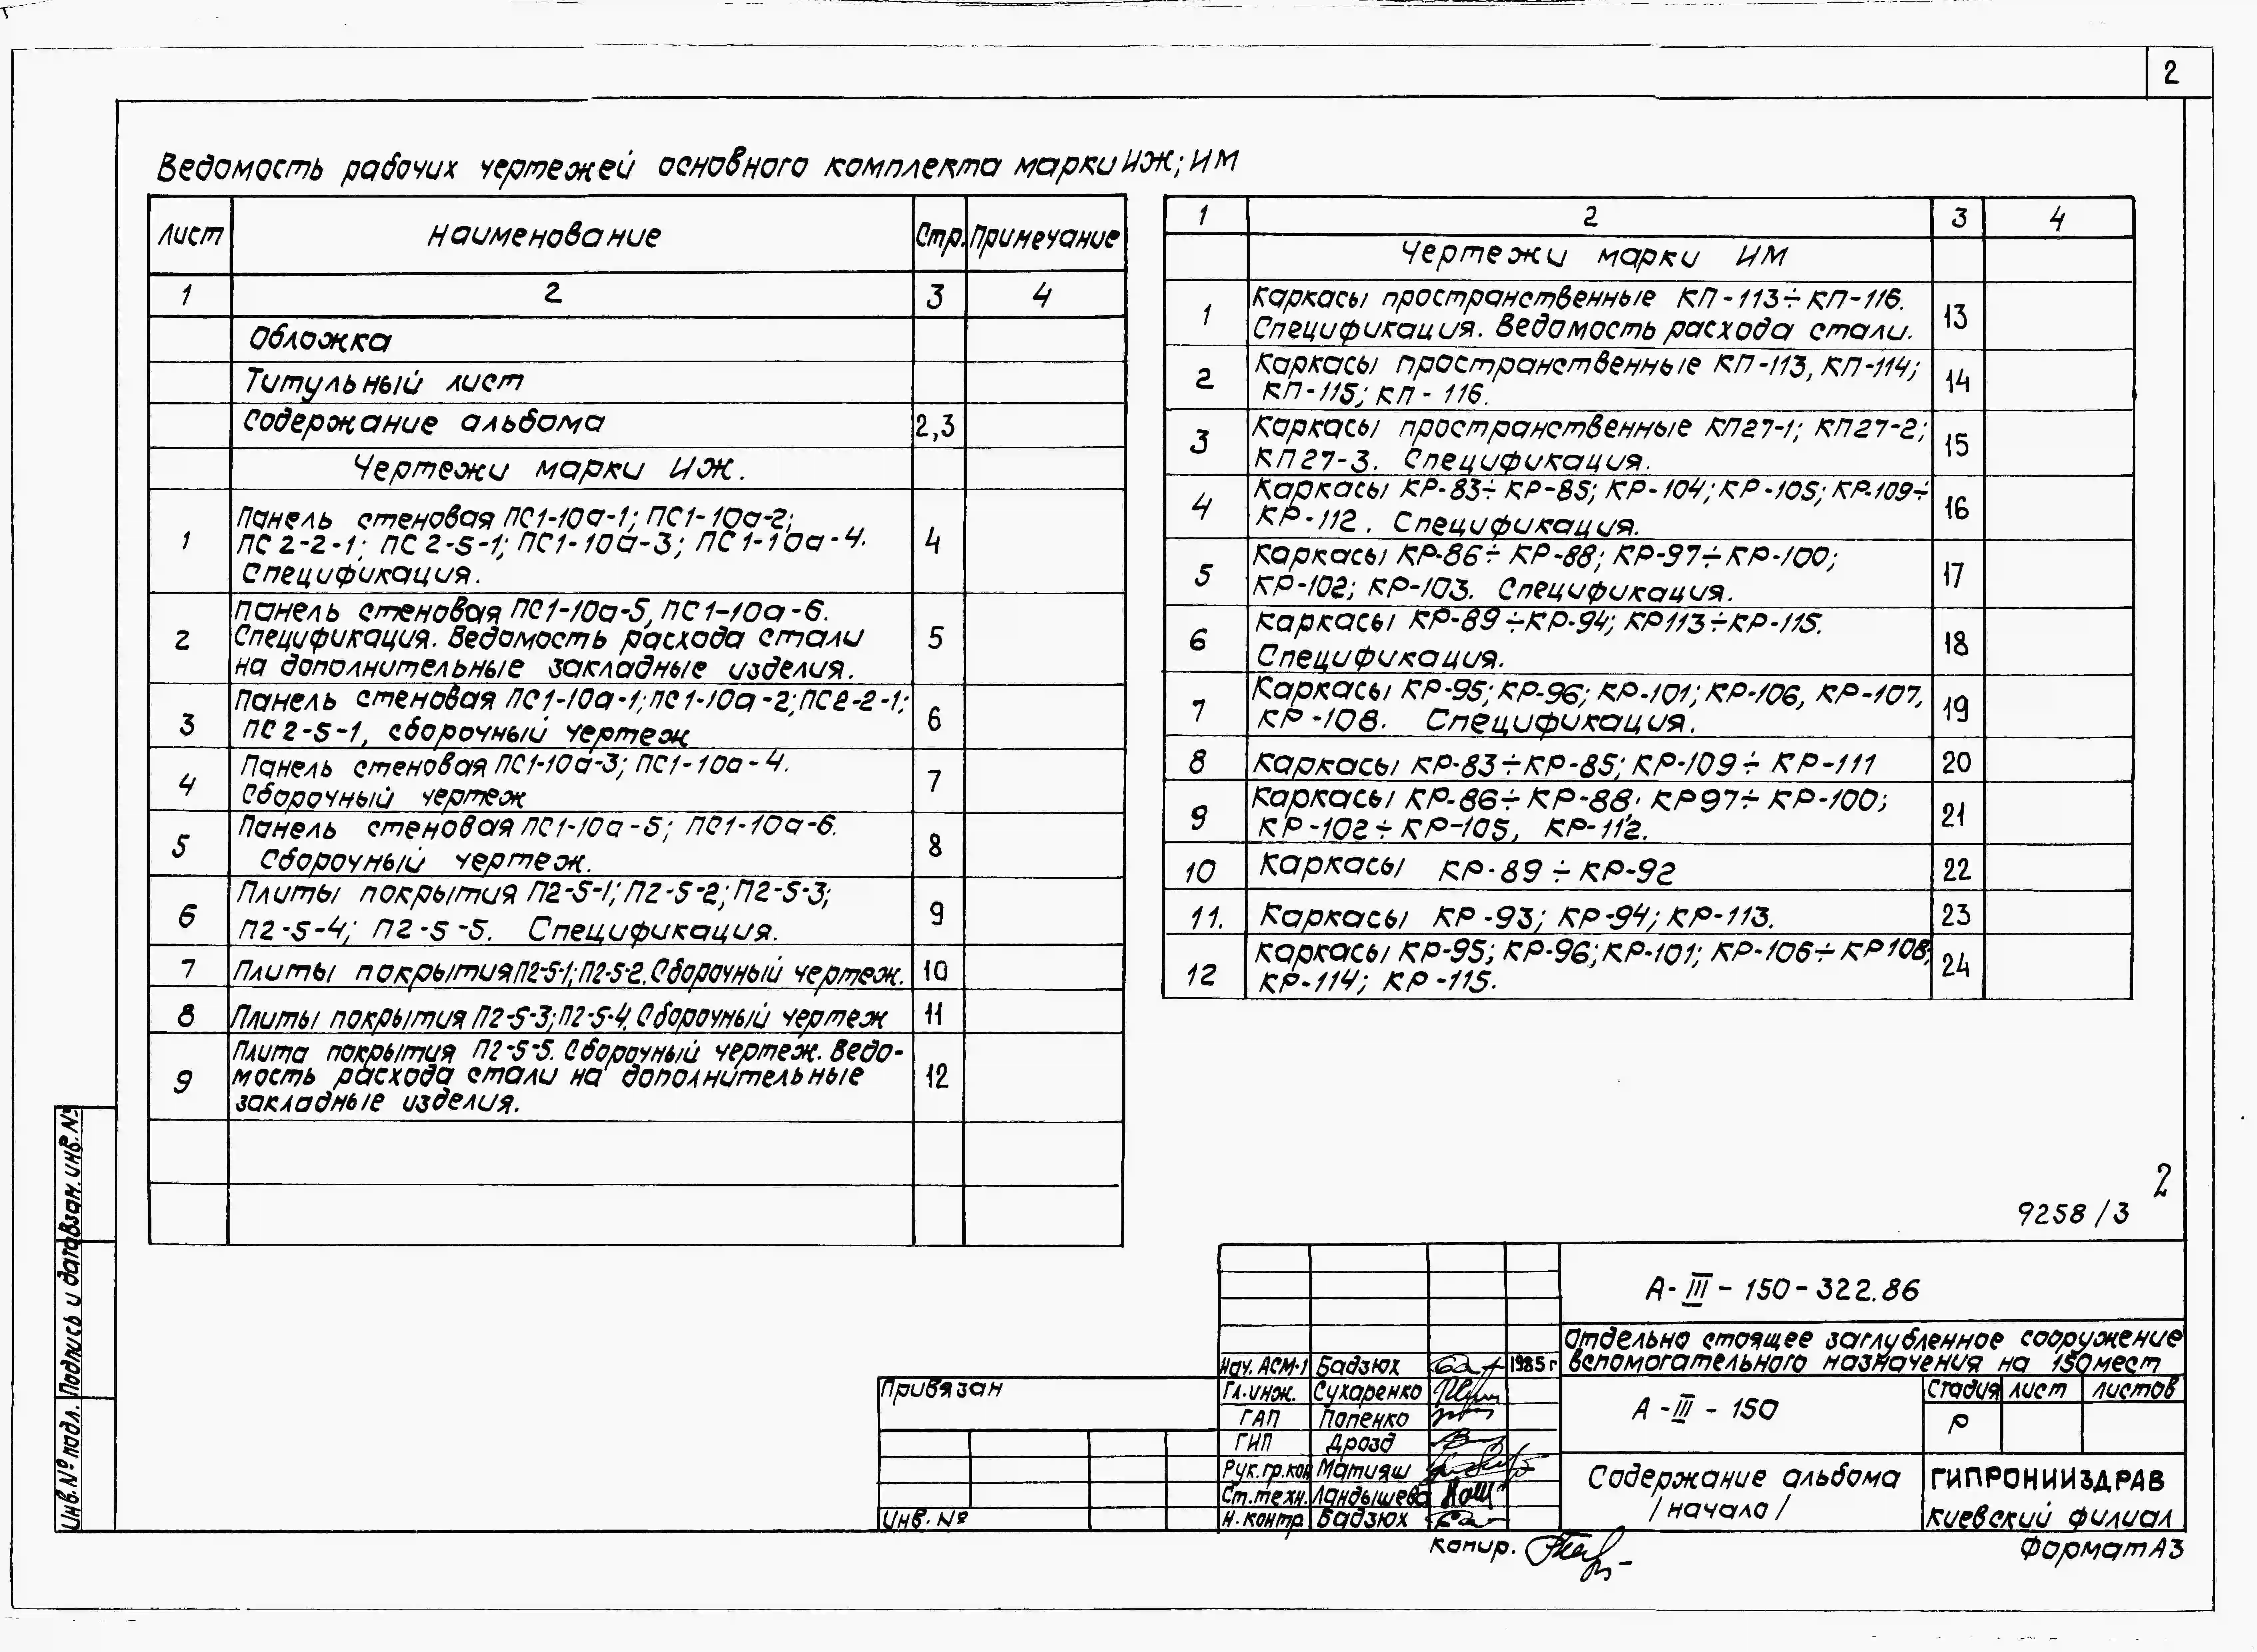 2
Ведомость рабочих чертежей основного комплекта марки ИЖ; ИМ
Лист Наименование Стр. Примечание
1 2 3 4
Обложка
Титульный лист
Содержание альбома 2,3
Чертежи марки ИЖ.
1 Панель стеновая ПС1-10а-1; ПС1-10а-2;
ПС2-2-1; ПС2-5-1; ПС1-10а-3; ПС1-10а-4. 4
Спецификация.
Панель стеновая ПС1-10а-5, ПС1-10а-6.
2 Спецификация. Ведомость расхода стали 5
на дополнительные закладные изделия.
Панель стеновая ПС1-10а-1; ПС1-10а-2; ПС2-2-1;
3 ПС2-5-1, сборочный чертеж 6
Панель стеновая ПС1-10а-3; ПС1-10а-4.
4 Сборочный чертеж 7
Панель стеновая ПС1-10а-5; ПС1-10а-6.
5 Сборочный чертеж. 8
Плиты покрытия П2-5-1; П2-5-2; П2-5-3;
6 П2-5-4; П2-5-5. Спецификация. 9
7 Плиты покрытия П2-5-1; П2-5-2. Сборочный чертеж. 10
8 Плиты покрытия П2-5-3; П2-5-4. Сборочный чертеж 11
Плита покрытия П2-5-5. Сборочный чертеж. Ведо-
9 мость расхода стали на дополнительные 12
закладные изделия.
1 2 3 4
Чертежи марки ИМ
Каркасы пространственные КП-113÷КП-116.
1 Спецификация. Ведомость расхода стали. 13
Каркасы пространственные КП-113, КП-114;
2 КП-115; КП-116. 14
Каркасы пространственные КП27-1; КП27-2;
3 КП27-3. Спецификация. 15
Каркасы КР-83÷КР-85; КР-104; КР-105; КР-109÷
4 КР-112. Спецификация. 16
Каркасы КР-86÷КР-88; КР-97÷КР-100;
5 КР-102; КР-103. Спецификация. 17
Каркасы КР-89÷КР-94; КР113÷КР-115.
6 Спецификация. 18
Каркасы КР-95; КР-96; КР-101; КР-106, КР-107,
7 КР-108. Спецификация. 19
8 Каркасы КР-83÷КР-85; КР-109÷КР-111 20
Каркасы КР-86÷КР-88; КР97÷КР-100;
9 КР-102÷КР-105, КР-112. 21
10 Каркасы КР-89÷КР-92 22
11. Каркасы КР-93; КР-94; КР-113. 23
Каркасы КР-95; КР-96; КР-101; КР-106÷КР108;
12 КР-114; КР-115. 24
2
9258/3
А-III-150-322.86
Отдельно стоящее заглубленное сооружение
вспомогательного назначения на 150 мест
Нач. АСМ-1 Бадзюх 1985 г
Гл.инж. Сухаренко
ГАП Попенко
ГИП Дрозд
Рук.гр.кон Матияш
Ст.техн. Ландышева
Н.контр Бадзюх
А-III-150
Стадия Лист Листов
Р
Содержание альбома
/начало/
ГИПРОНИИЗДРАВ
Киевский филиал
Привязан
Инв.№
Копир.
Формат А3
Инв.№подл. Подпись и дата Взам.инв.№